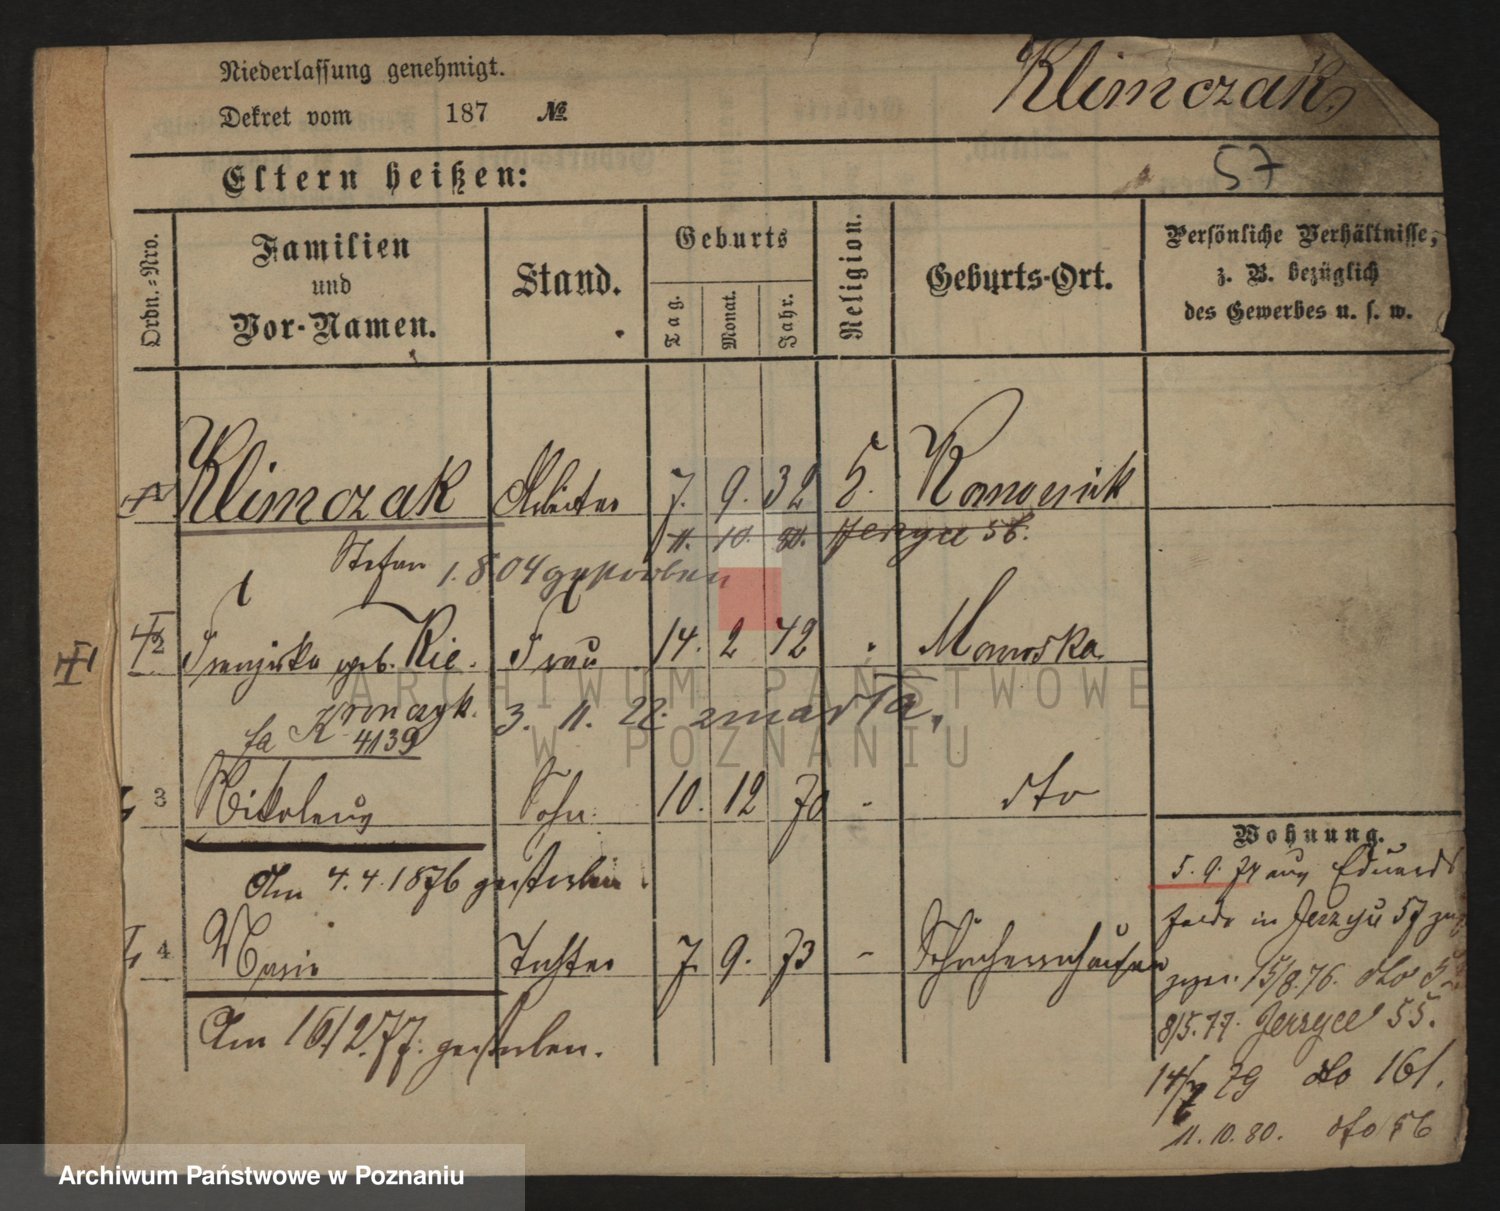 Niederlassung genehmigt.
Dekret vom 187 №
Klimczak
57
Eltern heißen:
Ordn.-Nro.
Familien
und
Vor-Namen.
Stand.
Geburts
Tag.
Monat.
Jahr.
Religion.
Geburts-Ort.
Persönliche Verhältnisse,
z. B. bezüglich
des Gewerbes u. s. w.
Klimczak Arbeiter 7. 9. 32
11. 10. 80. Jerzyce 56.
Stefan 1. 8 04 gestorben
2 Franziska geb. Kie. Frau 14. 2 42
3. 11. 22. zmarła,
4139
3 Sohn. 10. 12 70 - dto
Am 4. 4. 1876 gestorben.
4 Marie Tochter 7. 9. 73 -
Am 16/2. 77. gestorben.
Wohnung.
5. 9. 74 aus Eduards
felde in Jerzyce 57 zuge
zogen. 15/8. 76. dto
8/5. 77. Jerzyce 55.
14/ 79 dto 161.
11. 10. 80. dto 56
ARCHIWUM PAŃSTWOWE
W POZNANIU
Archiwum Państwowe w Poznaniu